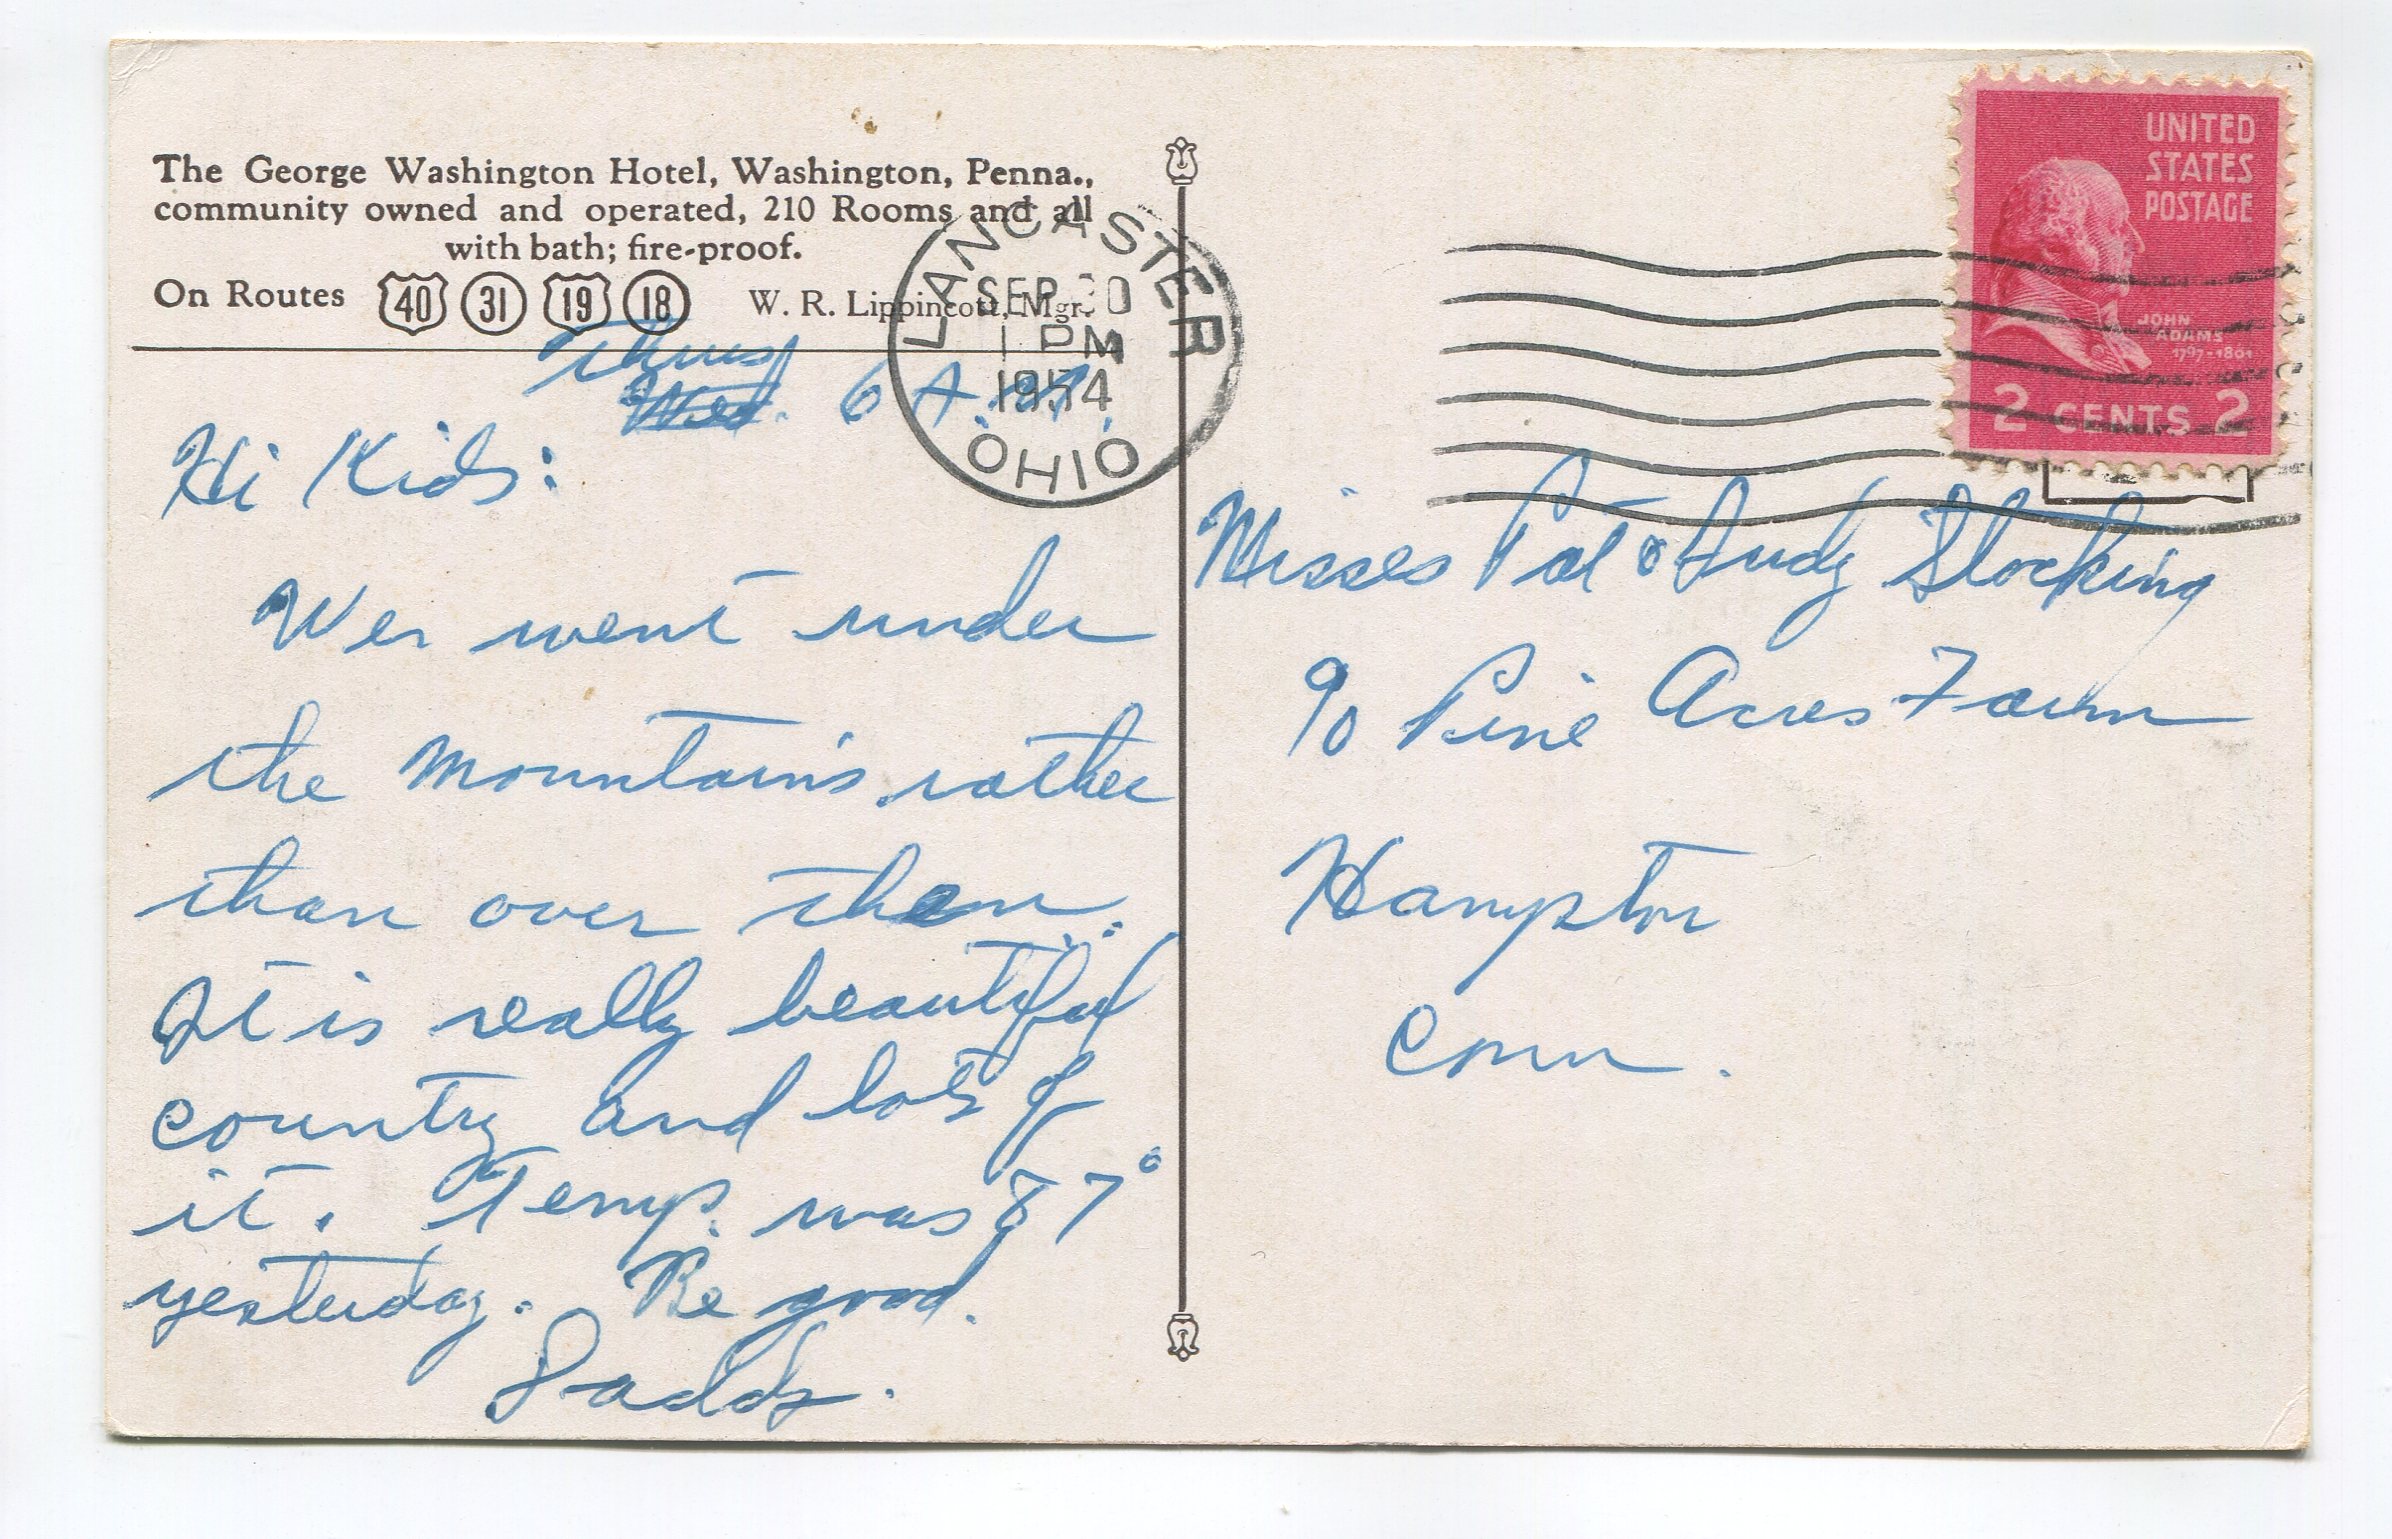 The George Washington Hotel, Washington, Penna.,
community owned and operated, 210 Rooms and all
with bath; fire-proof.
On Routes 40 31 19 18 W. R. Lippincott, Mgr.
LANCASTER
SEP 30
1 PM
1954
OHIO
UNITED
STATES
POSTAGE
JOHN
ADAMS
1797-1801
2 CENTS 2
Thurs
Wed. 6 A.M.
Hi Kids:
We went under
the mountains rather
than over them.
It is really beautiful
country and lots of
it. Temp. was 87°
yesterday. Be good.
Daddy.
Misses Pat & Judy Stocking
c/o Pine Acres Farm
Hampton
Conn.